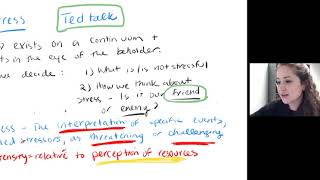 ress Ted talk
exists on a continuum +
ts in the eye of the beholder.
we decide: 1) What is/is not stressful
2) How we think about
stress - Is it our friend
or enemy?
ess - The interpretation of specific events,
ed stressors, as threatening or challenging
tensity - relative to perception of resources